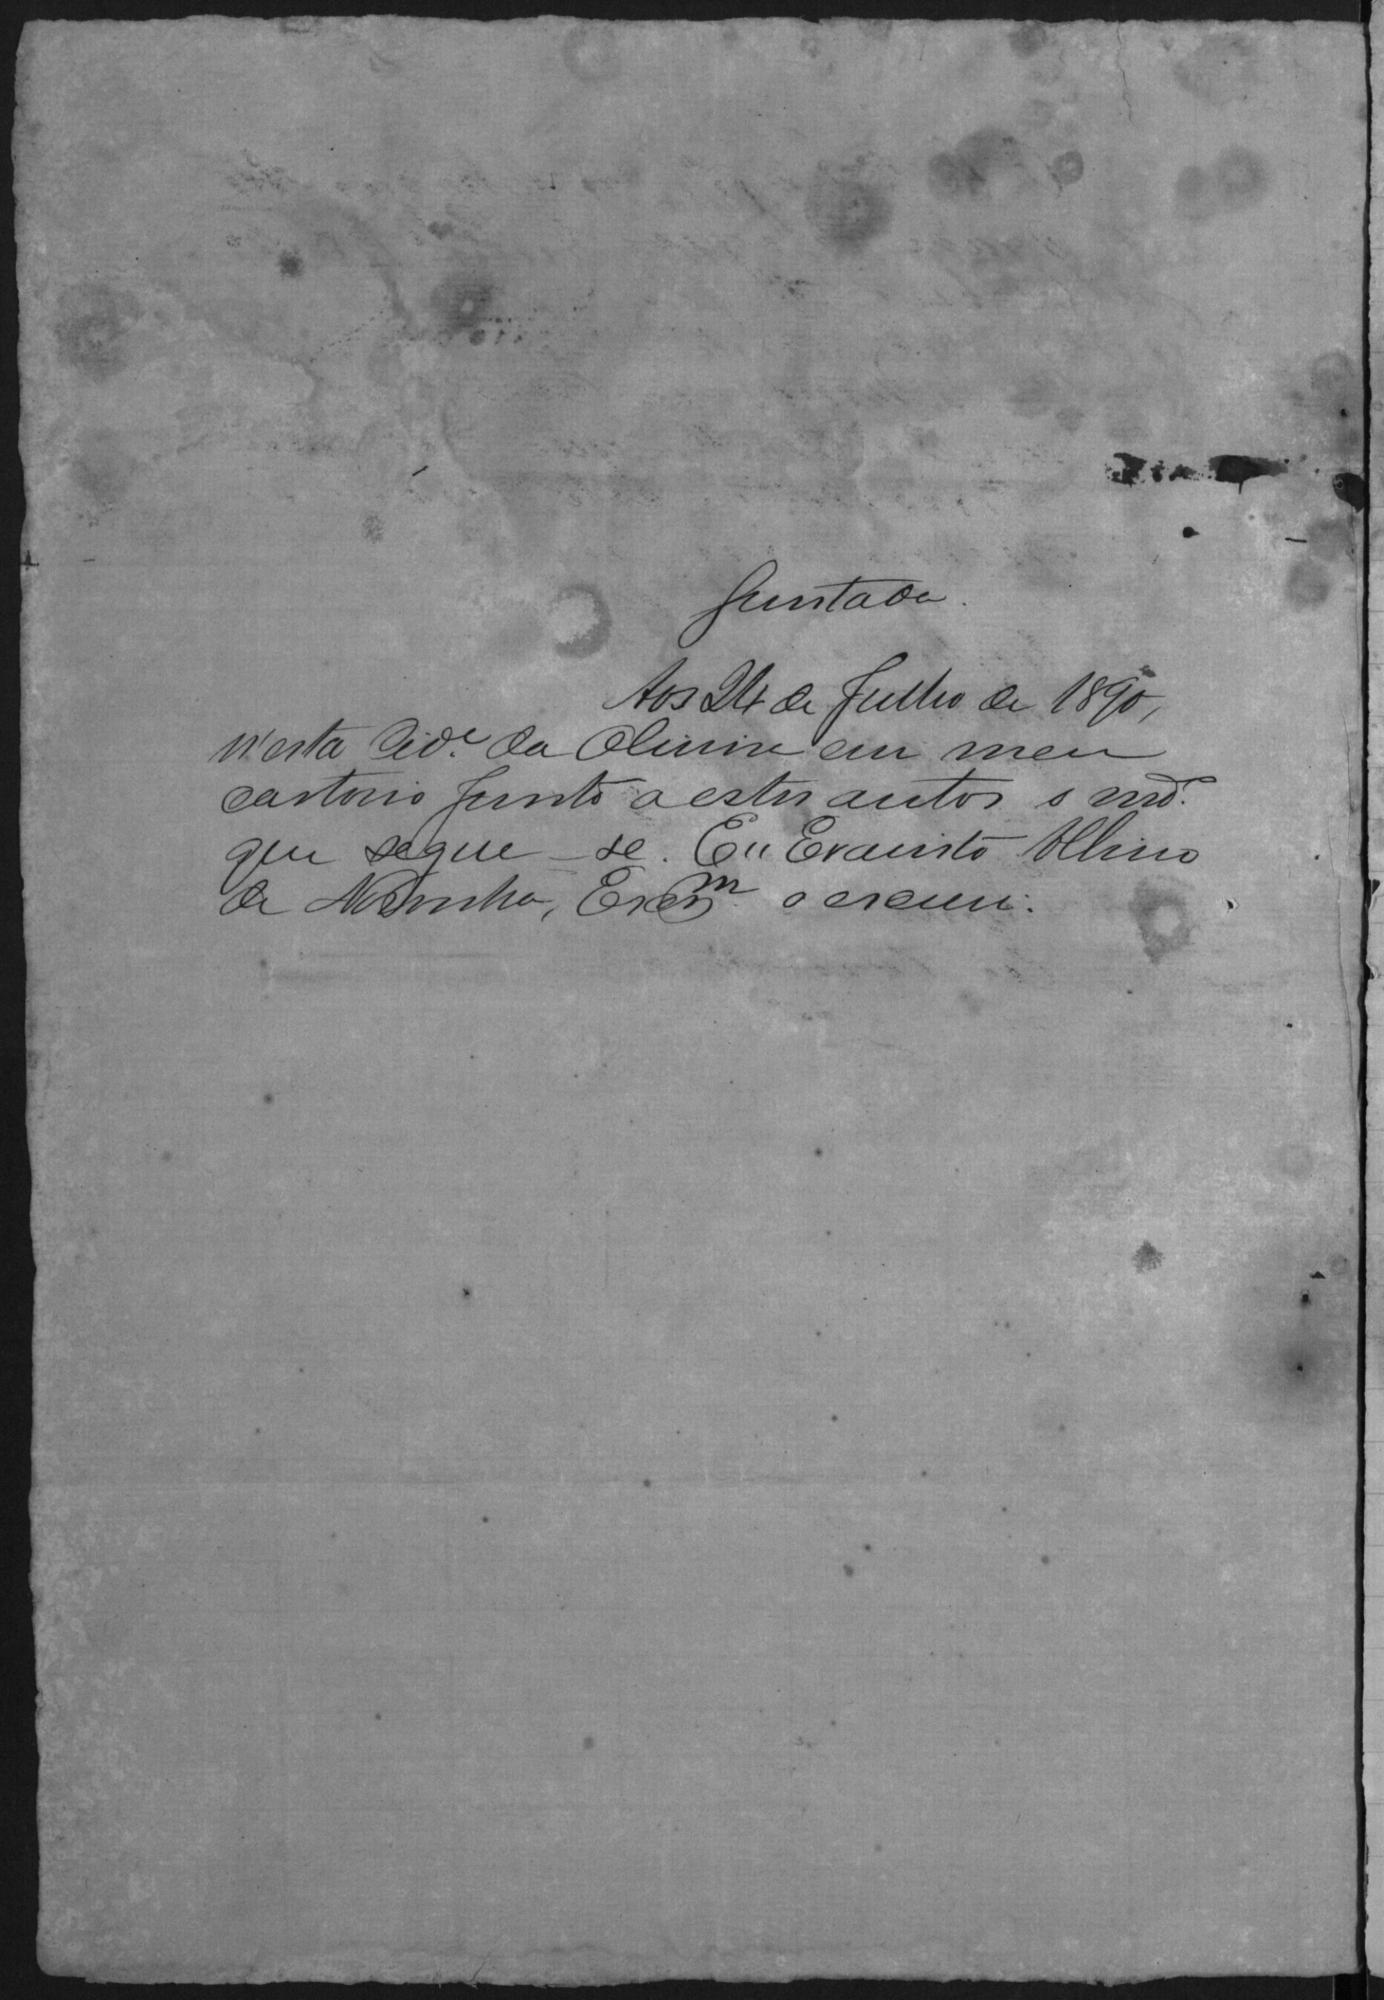 Juntada.
Aos 24 de Julho de 1890,
n'esta Cid.e da Oliveira em meu
cartorio junto a estes autos o md.o
que segue-se. Eu Evaristo Albino
de Noronha, Escm. o escrevi.